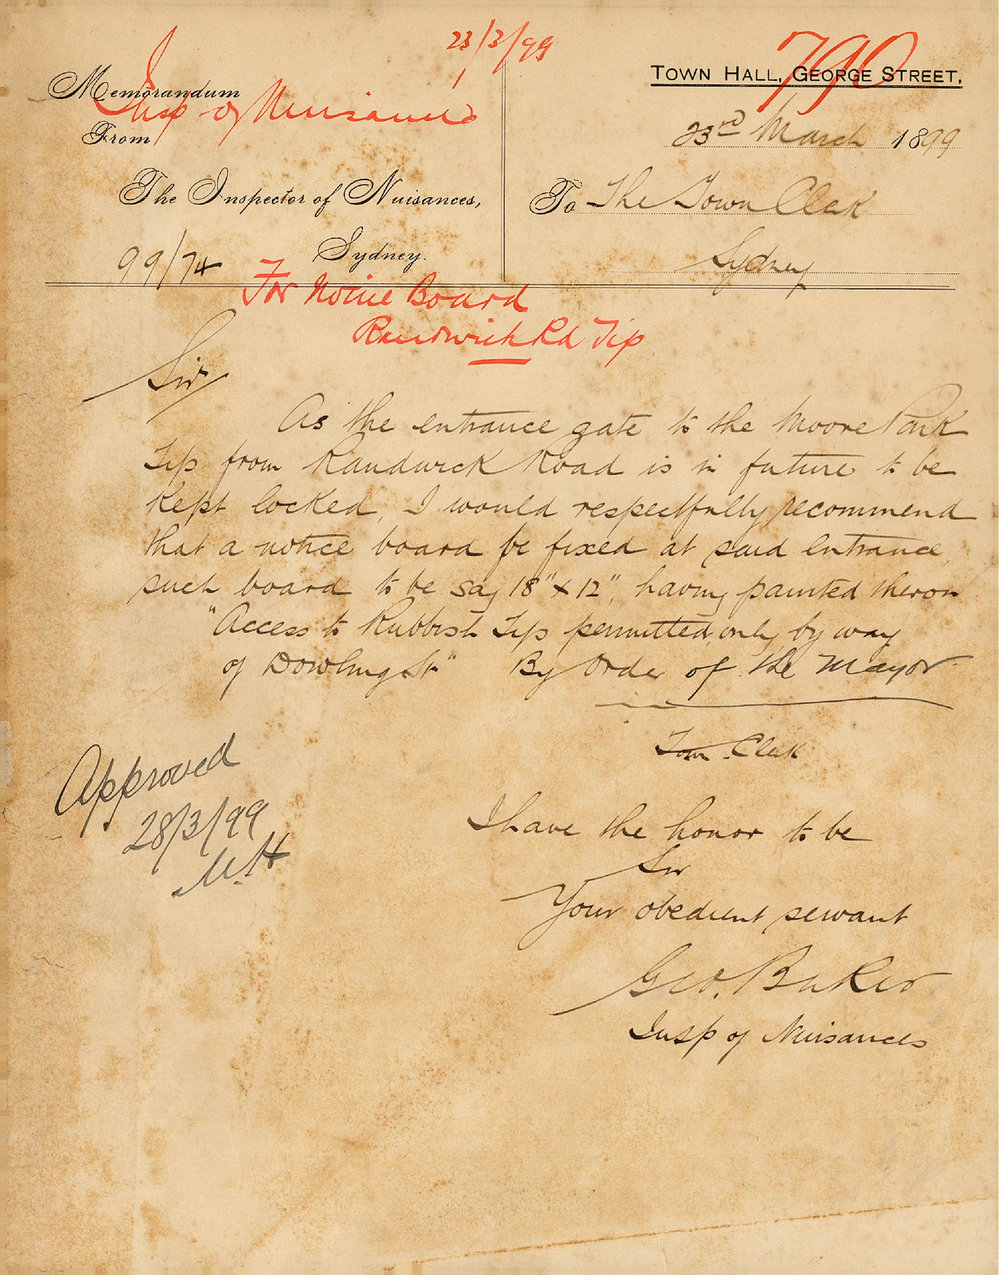 23/3/99
790
Insp of Nuisances
Memorandum
From
The Inspector of Nuisances,
Sydney.
99/74
TOWN HALL, GEORGE STREET,
23rd March 1899
To The Town Clerk
Sydney
For Notice Board
Randwick Rd Tip
Sir
As the entrance gate to the Moore Park
Tip from Randwick Road is in future to be
kept locked, I would respectfully recommend
that a notice board be fixed at said entrance,
such board to be say 18" x 12", having painted theron
"Access to Rubbish Tip permitted only by way
of Dowling St" By Order of the Mayor
Town Clerk
I have the honor to be
Sir
Your obedient servant
Geo. Baker
Insp of Nuisances
Approved
28/3/99
M.H